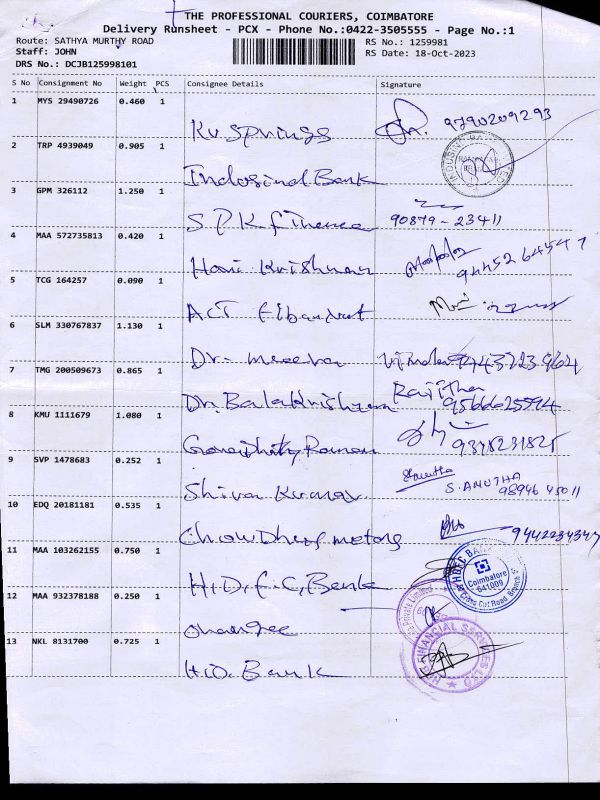 THE PROFESSIONAL COURIERS, COIMBATORE
Delivery Runsheet - PCX - Phone No.:0422-3505555 - Page No.:1
Route: SATHYA MURTHY ROAD RS No.: 1259981
Staff: JOHN RS Date: 18-Oct-2023
DRS No.: DCJB125998101
S No Consignment No Weight PCS Consignee Details Signature
1 MYS 29490726 0.460 1
KV Springs 9790209293
2 TRP 4939049 0.905 1
Indosind Bank
3 GPM 326112 1.250 1
S.P.K finance 90879-23411
4 MAA 572735813 0.420 1
Hari Krishnan 9445264547
5 TCG 164257 0.090 1
ACT
6 SLM 330767837 1.130 1
Dr. Meera
7 TMG 200509673 0.865 1
Dr. Balakrishnan Rajitha
8 KMU 1111679 1.080 1
Raman
9 SVP 1478683 0.252 1
Shiva Kumar S. ANUTHA
98946 45011
10 EDQ 20181181 0.535 1
Chowdhry
11 MAA 103262155 0.750 1
H.D.F.C, Bank HDFC BANK
Coimbatore
641009
Cross Cut Road Branch
12 MAA 932378188 0.250 1
Private Limited
13 NKL 8131700 0.725 1
Bank FINANCIAL SERVICES LTD